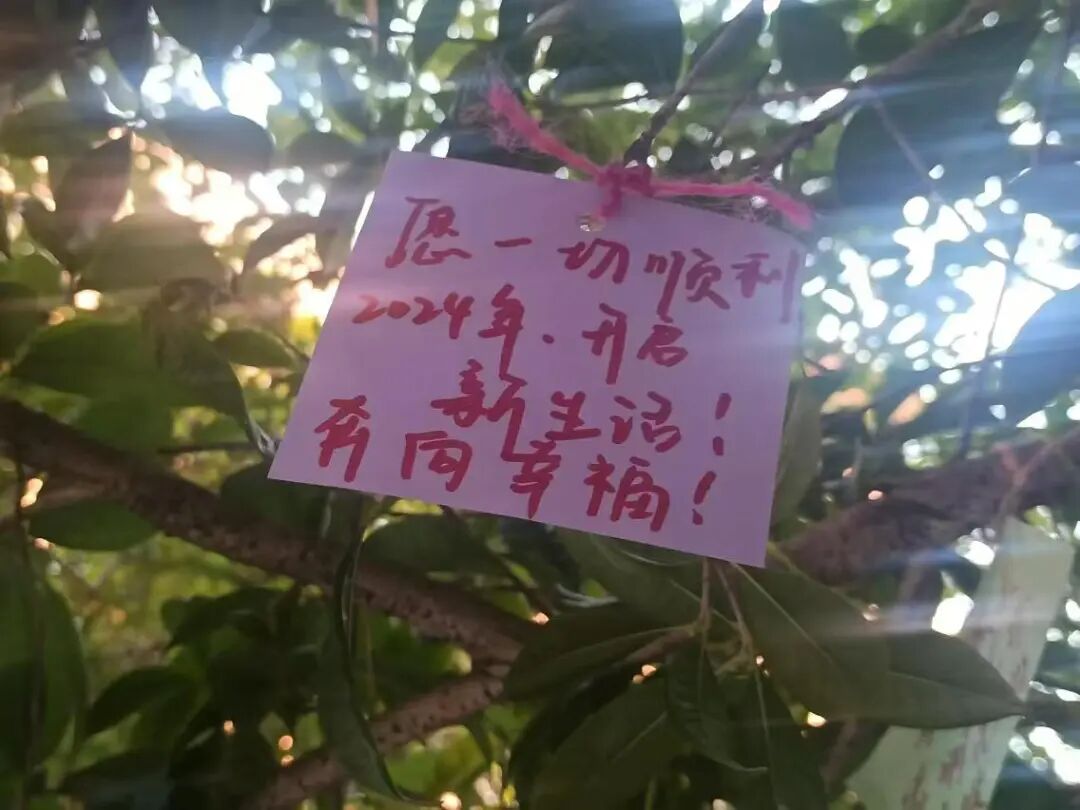 愿一切顺利
2024年.开启
新生活!
奔向幸福!